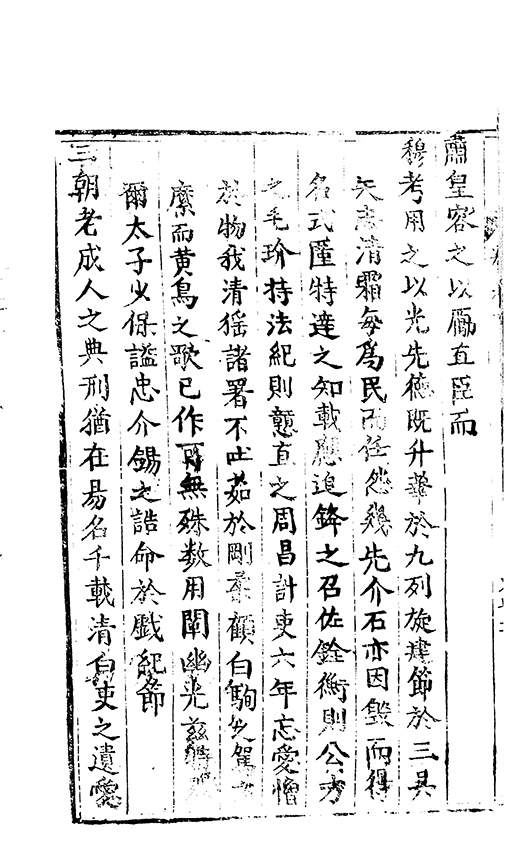 肅皇容之以勵直臣而
穆考用之以光先德既升華於九列旋建節於三吳
矢志清霜每爲民而任怨幾先介石亦因毀而得
名式匪特達之知載應追鋒之召佐銓衡則公方
之毛玠持法紀則戇直之周昌計吏六年忘愛憎
於物我清猺諸署不吐茹於剛柔顧白駒之駕
縻而黃鳥之歌已作可無殊数用闡幽光兹特
爾太子少保謚忠介錫之誥命於戲紀節
三朝老成人之典刑猶在易名千載清白吏之遺愛